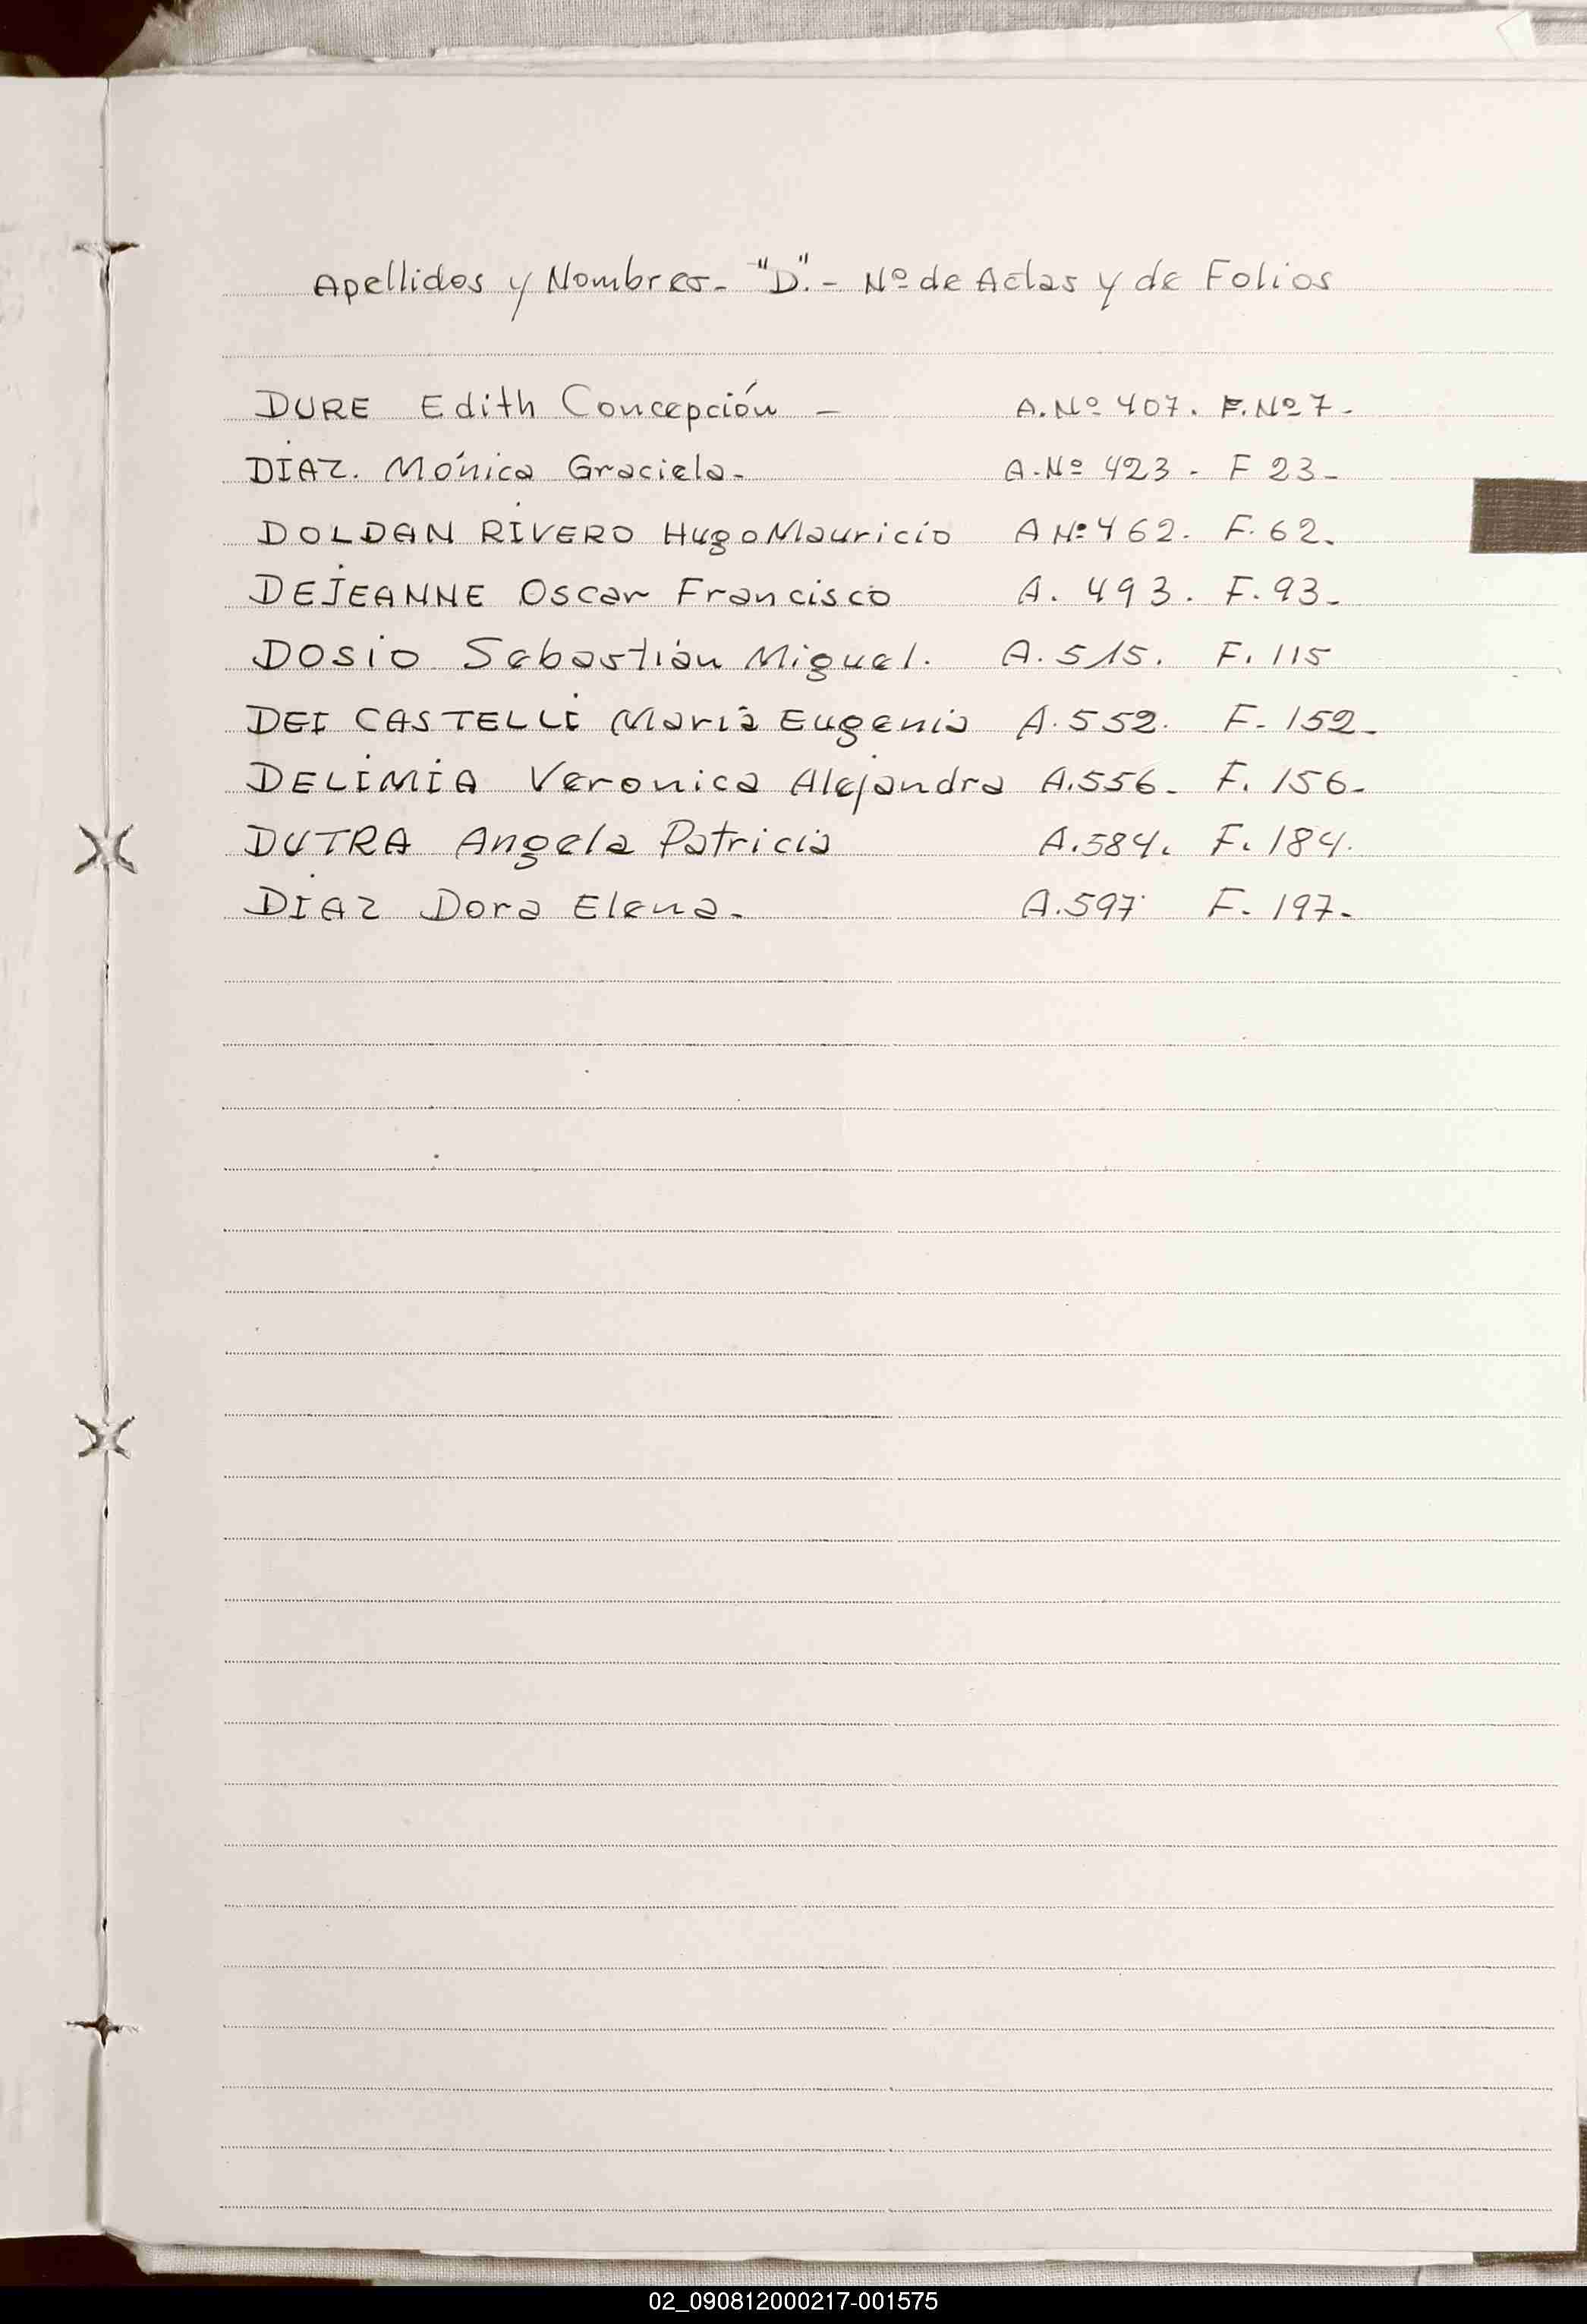 Apellidos y Nombres- "D".- Nº de Actas y de Folios
DURE Edith Concepción - A.Nº 407. F.Nº 7-
DIAZ. Mónica Graciela- A-Nº 423 - F 23-
DOLDAN RIVERO Hugo Mauricio A Nº 462. F. 62.
DEJEANNE Oscar Francisco A. 493. F. 93-
DOSIO Sebastián Miguel. A. 515. F. 115
DEI CASTELLI María Eugenia A. 552. F- 152-
DELIMIA Veronica Alejandra A. 556- F. 156-
DUTRA Angela Patricia A. 584. F. 184.
DIAZ Dora Elena- A. 597. F- 197-
02_090812000217-001575